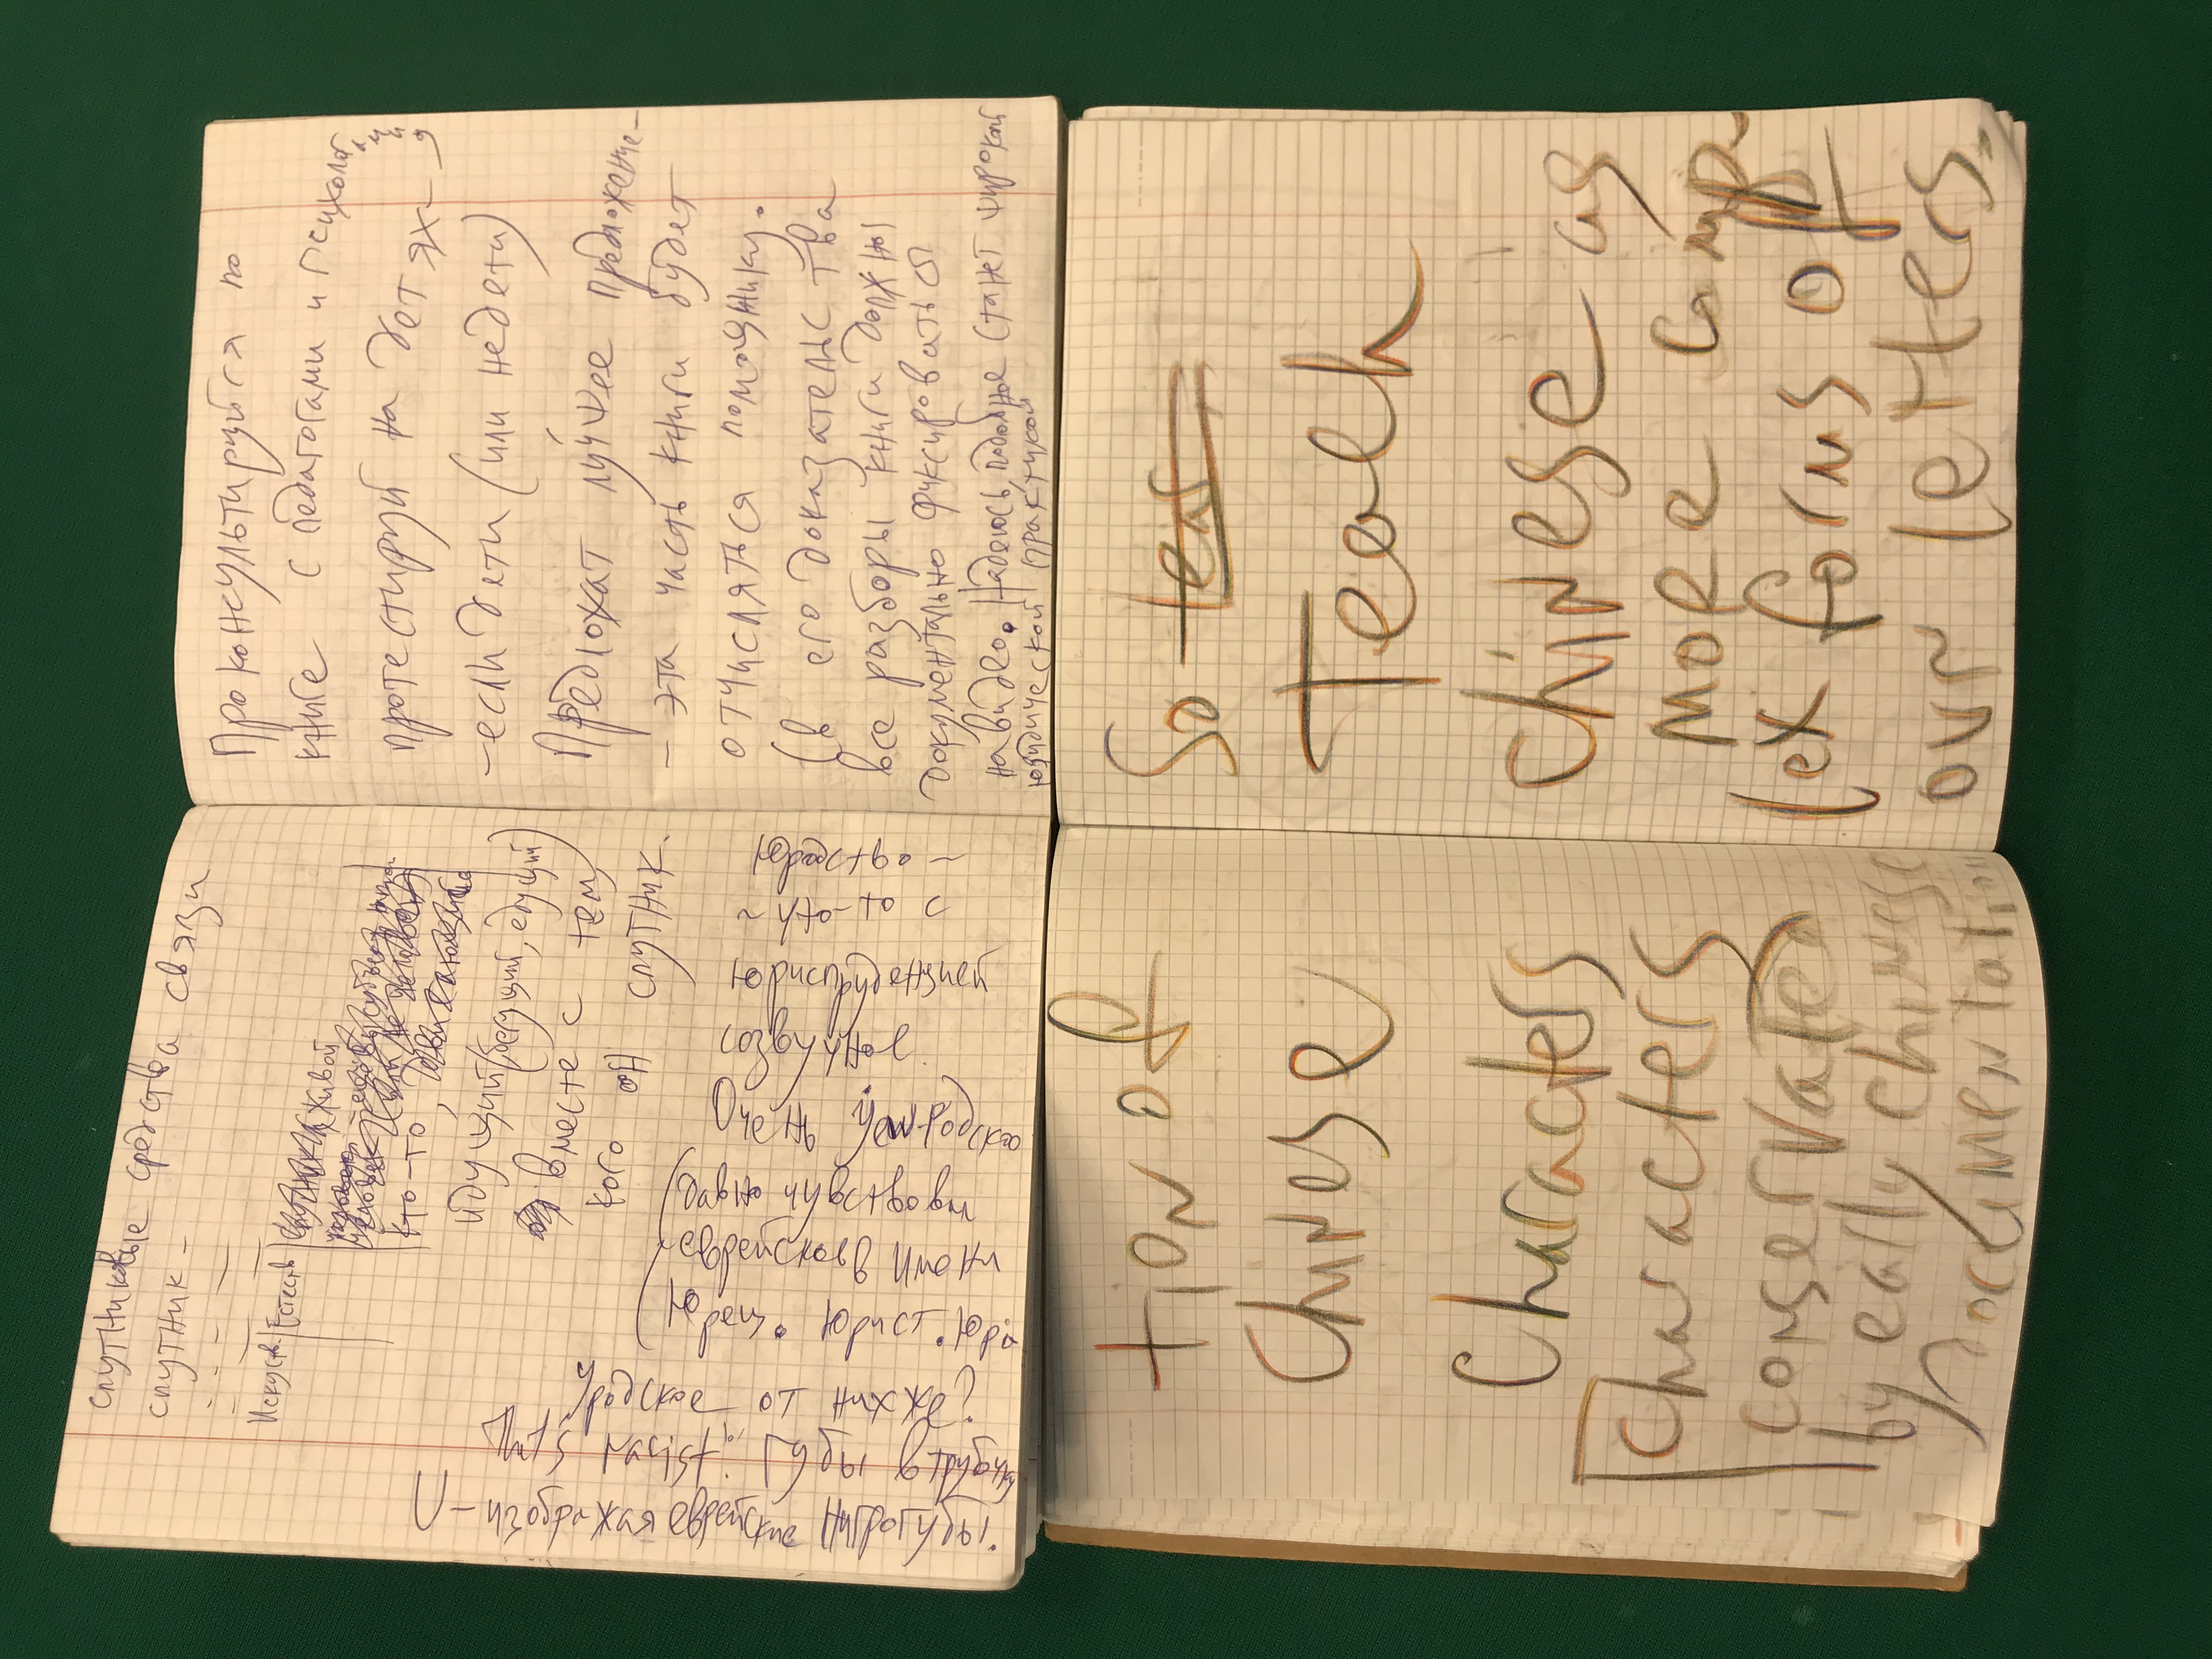 спутниковые средства связи
спутник –
Искуств. Естеств
живой
кто-то,
идущий (бегущий, едущий)
вместе с тем,
кого он спутник.
~ что-то с
юриспруденцией
созвучное
Очень
(Давно чувствовал
еврейское в имени
Юрец. Юрист. Юра
от них же?
Губы в трубу
U – изображая еврейские
Проконсультируйся по
книге с педагогами и психологами,
протестируй на детях –
– если дети (или недети)
предложат лучшее предложение –
– эта часть книги будет
отчисляться помощнику.
(в его доказательства
все разборы книги должны
документально фиксироваться
на видео. Надеюсь, подобное станет широкой
юридической практикой
tion of
Chinese
Characters
characters
conservated
by early chinese
documentation
So
Teach
Chinese as
more comp-
lex forms of
our letters.